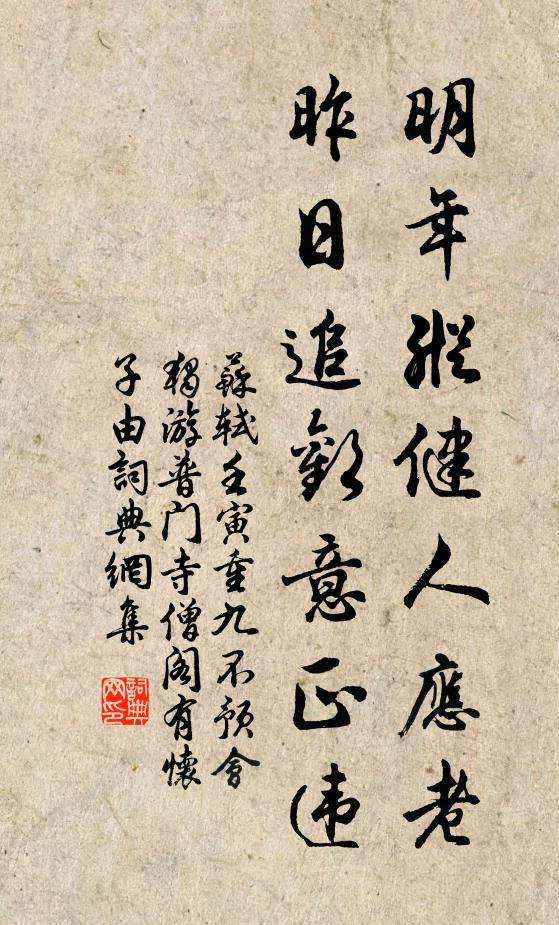 明年縱健人應老
昨日追歡意正違
蘇軾壬寅重九不預會
獨游普門寺僧閣有懷
子由詞典網集
詞典
网印